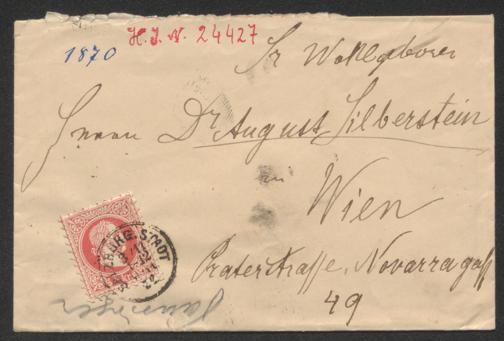 H. I. N. 24427
1870
Sr Wohlgeboren
Herrn Dr August Silberstein
in
Wien
Praterstraße, Novarragasse
49
STADT